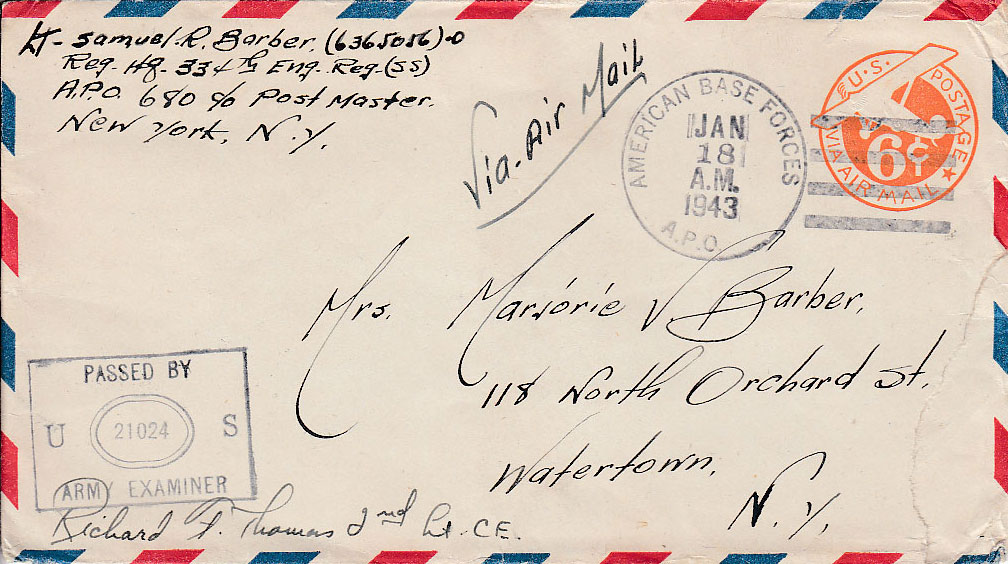 Lt- Samuel. R. Barber. (6365056)-O
Reg. Hq. 334th Eng. Reg. (SS)
A.P.O. 680 % Post Master.
New York, N.Y.
Via-Air Mail
AMERICAN BASE FORCES
JAN
18
A.M.
1943
A.P.O.
U.S. POSTAGE
6¢
VIA AIR MAIL
Mrs. Marjorie V. Barber.
118 North Orchard St.
Watertown.
N.Y.
PASSED BY
U 21024 S
ARMY EXAMINER
Richard F. Thomas 2nd Lt. CE.